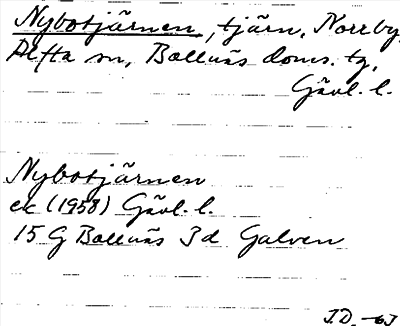 Nybotjärnen, tjärn, Norrby,
Alfta sn, Bollnäs doms. tg,
Gävl. l.
Nybotjärnen
ek (1958) Gävl. l.
15 G Bollnäs 3d Galven
J.D. -63